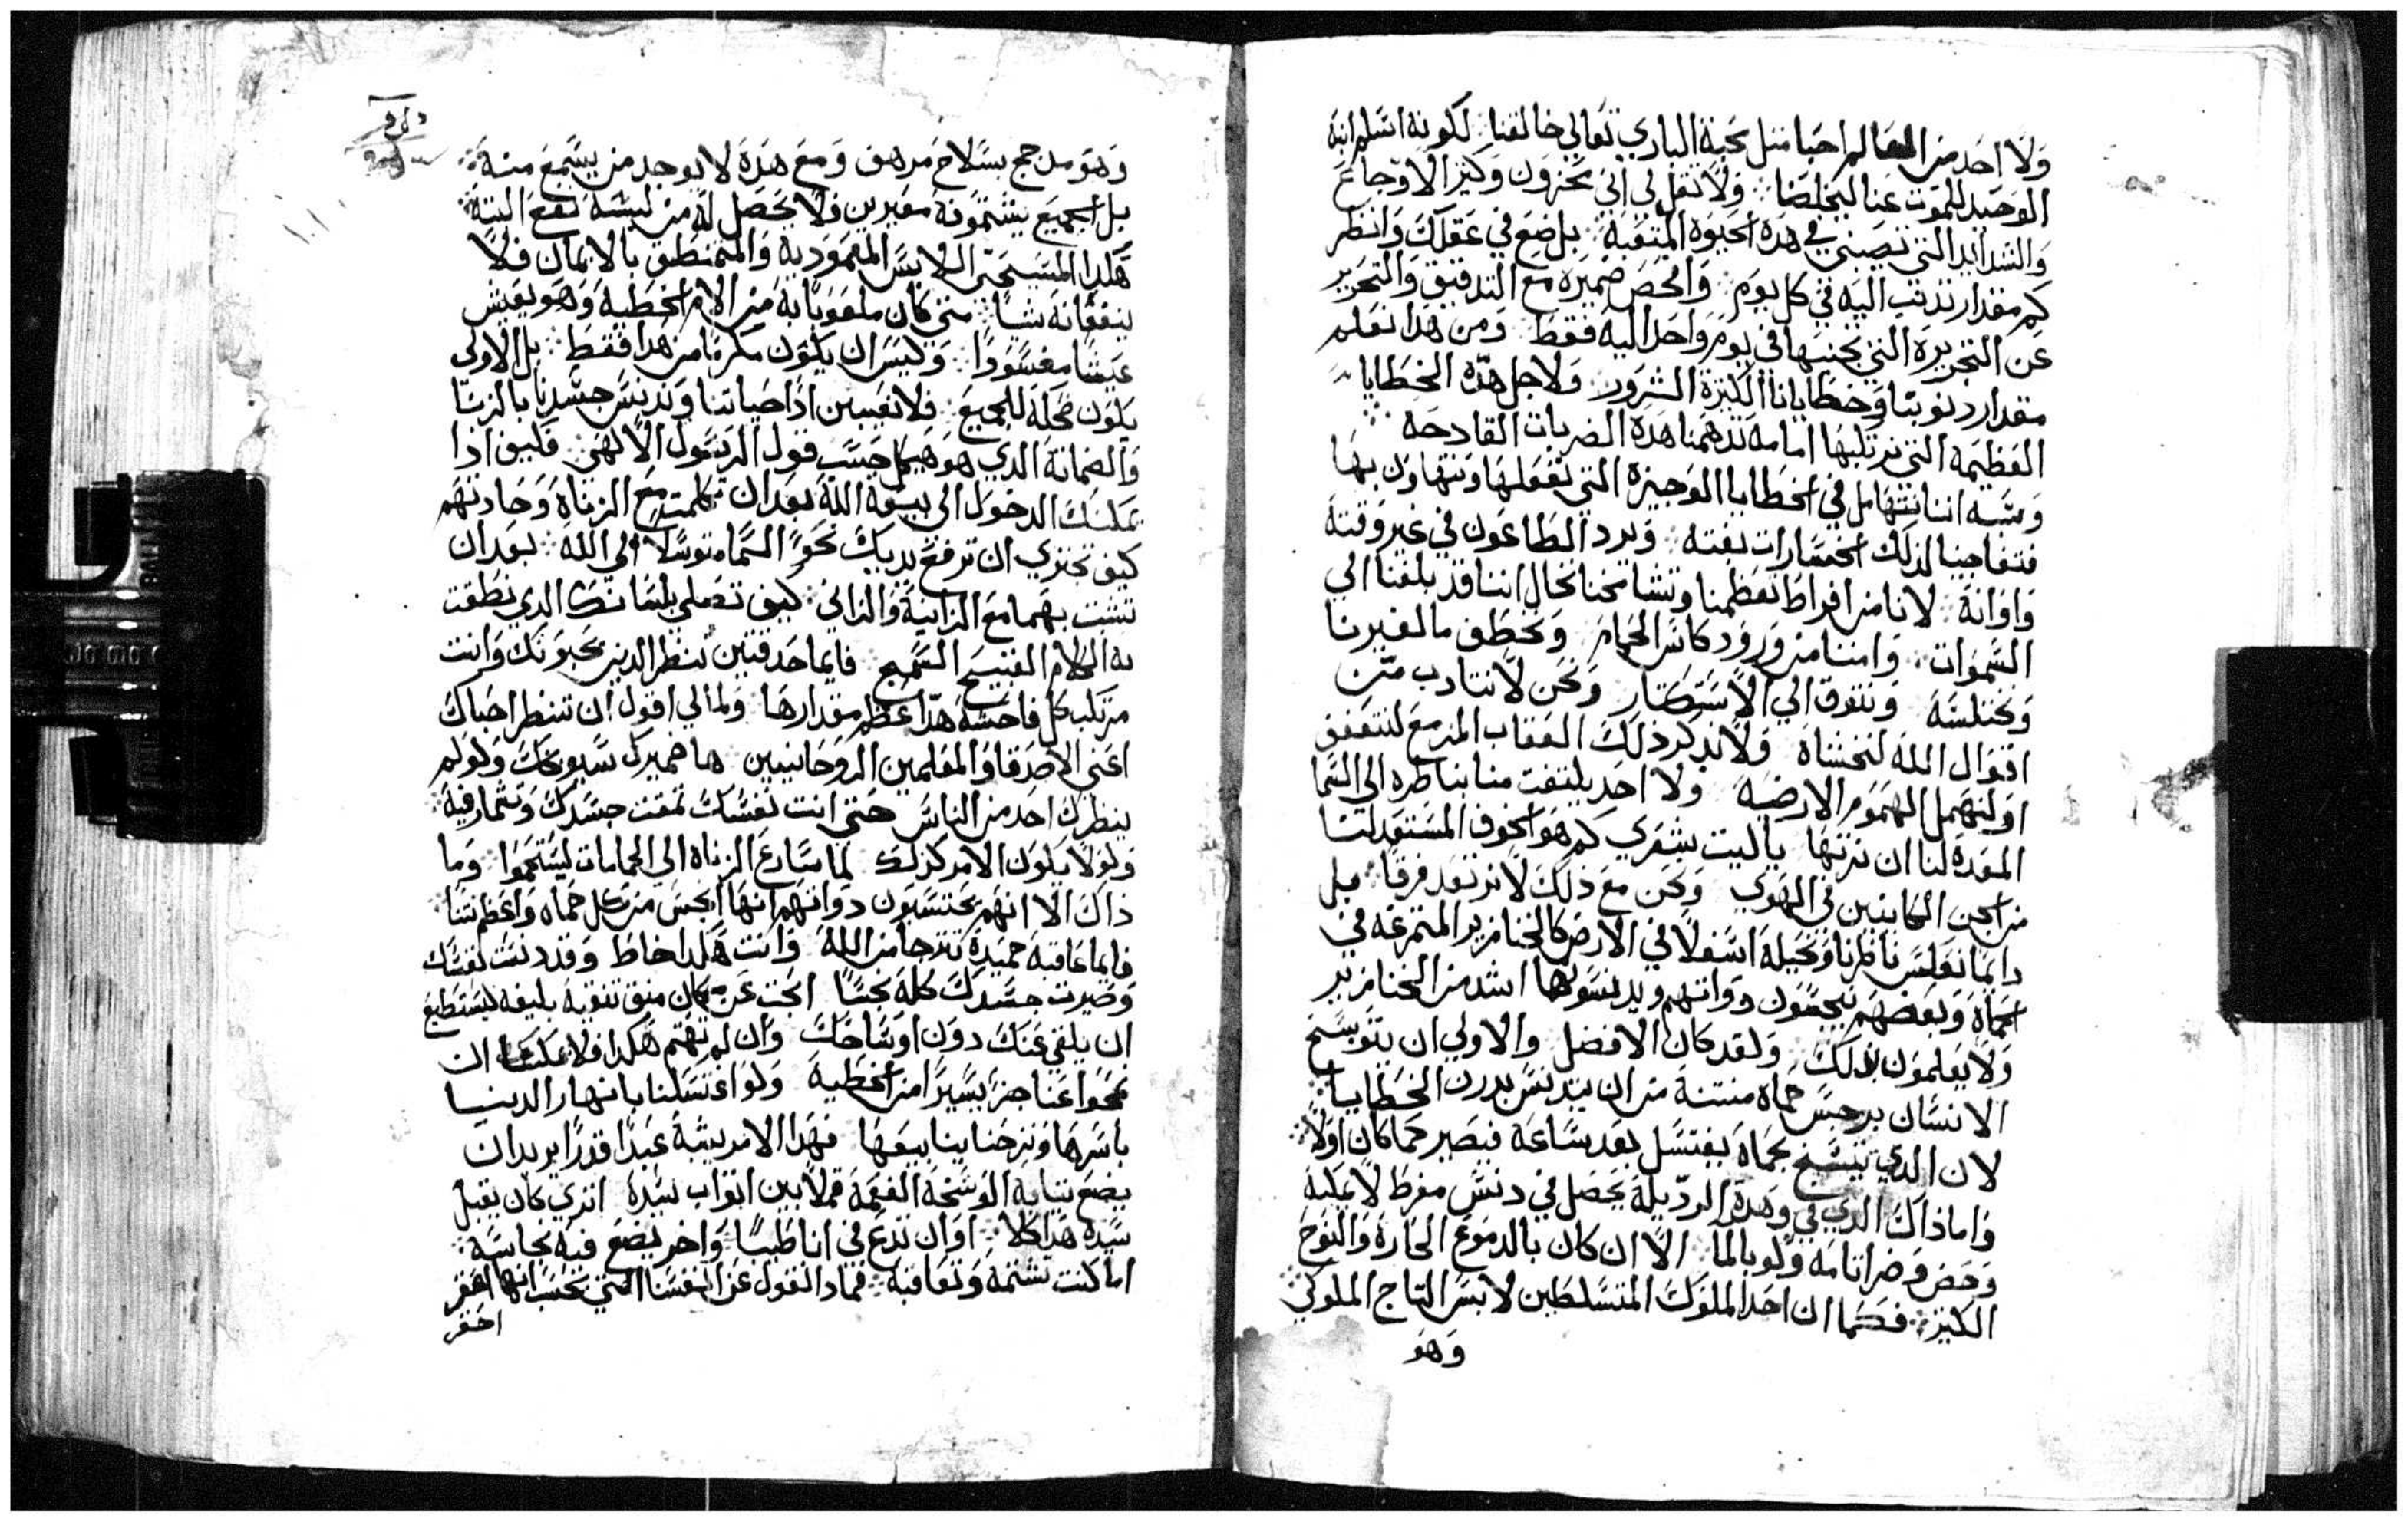 ولا احد من العالم احبنا مثل محبة الباري تعالى خالقنا لكونه اسلم ابنه
الوحيد للموت عنا ليخلصنا ولا تقل لي اني محزون وكثيرا الاوجاع
والشدايد التي تصبني في هذه الحيوه المتعبة بل ضع في عقلك وانظر
كم مقدار تذنب اليه في كل يوم وافحص ضميره مع التدقيق والتحرير
عن الجريرة التي تجنيها في يوم واحد اليه فقط ومن هذا تعلم
مقدار ذنوبنا وخطايانا الكثيرة الشرور ولاجل هذه الخطايا
العظيمه التي نرتكبها امامه تدهمنا هذه الضربات القادحه
وشبه اننا نتهامل في الخطايا الوجيزه التي نفعلها ونتهاون بها
فتفاجينا لذلك الخسارات بغته ويرد الطاعون في غير وقته
واوانه لاننا من افراط تعظمنا وتشامخنا نخال اننا قد بلغنا الي
السموات وامنا من ورود كاس الحمام ونخطف ما لغيرنا
ونختلسه ونتوق الي الاستكثار ونحن لا نتادب من
اقوال الله لنخشاه ولا نذكر ذلك العقاب المزمع لنتعفف
او لنهمل الهموم الارضيه ولا احد يلتفت منا بناظره الي السما
المعده لنا ان نرثها يا ليت شعري كم هو الخوف المستعد لنا
من الجن الكاينين في الهوي ونحن مع ذلك لا نرتعد فرقا بل
دايما نعكس ناظرنا ونحيله اسفلا في الارض كالخنازير المتمرغه في
الحماه وبعضهم ينجسون ذواتهم ويدنسونها اشد من الخنازير
ولا يعلمون بذلك ولقد كان الافضل والاولي ان يتوسخ
الانسان برجس حماه منتنة من ان يتدنس بدرن الخطايا
لان الذي يتسخ بحماه يغتسل بعد ساعه فيصير كما كان اولا
واما ذاك الذي في وهدة الرذيلة يحصل في دنس مفرط لا عليه
الا ان كان بالدموع الحارة والنوح
الكثير فكما ان احد الملوك المتسلطين لابس التاج الملوكي
وهو
وهو مدجج بسلاح مرهف ومع هذه لا يوجد من يسمع منه
بل الجميع يشتمونه معيرين فلا يحصل له من لبسه نفع البتة
هكذا المسيحي اللابس المعمودية والمتمنطق بالايمان فلا
ينفعانه شيا متي كان ملعوبا به من الام الخطية وهو يعيش
عيشا مفسودا وليس ان يكون مكرما من هذا فقط بل الاولى
يكون مخجلة للجميع فلا نعيبن اذا حياتنا وندنس جسدنا بالزنا
الذي هو هيكل حسب قول الرسول الالهي فكيف اذا
يمكنك الدخول الى بيعة الله بعد ان تكلمت مع الزناه وحادثتهم
كيف تجتري ان ترفع يديك نحو السما متوسلا الى الله بعد ان
تشبثت بهما مع الزانية والزاني كيف تصلي بلسانك الذي نطقت
به الكلام القبيح السمج فايما حدقتين تنظر الذين يحبونك وانت
مرتكب كل فاحشة هذا عظم مقدارها ولما لي اقول ان تنظر احباك
اعني الاصدقا والمعلمين الروحانيين ها ضميرك سيوبخك ولو لم
ينظرك احد من الناس حتي انت نفسك تمقت جسدك
ولولا يكون الامر كذلك لما سارع الزناه الي الحمامات ليستحموا وما
ذاك الا انهم يحتسبون ذواتهم انها انجس من كل حماه واعظم نتنا
فايما عاقبة حميدة تترجا من الله وانت هكذا خاط وقد دنست نفسك
وصيرت جسدك كله نجسا ابحث عن مكان تنقيه بليغه ليستطيع
ان يلقي عنك درن اوساخك وان لم تهتم هكذا فلا يمكنك ان
تمحوا عنا جزا يسيرا من الخطية ولو اغتسلنا بانهار الدنيا
باسرها ونزحنا ينابيعها فهذا الامر يشبه عبدا قذرا يريد ان
يضع ثيابه الوسخة المفعمة قملا بين اثواب سيده اتري كان يقبل
سيده هذا كلا او ان تدع في انا طيبا واخر يضع فيه نجاسه
اما كنت تشتمه وتعاقبه فماذا نقول عن انفسنا التي نحتسبها احقر
احقر